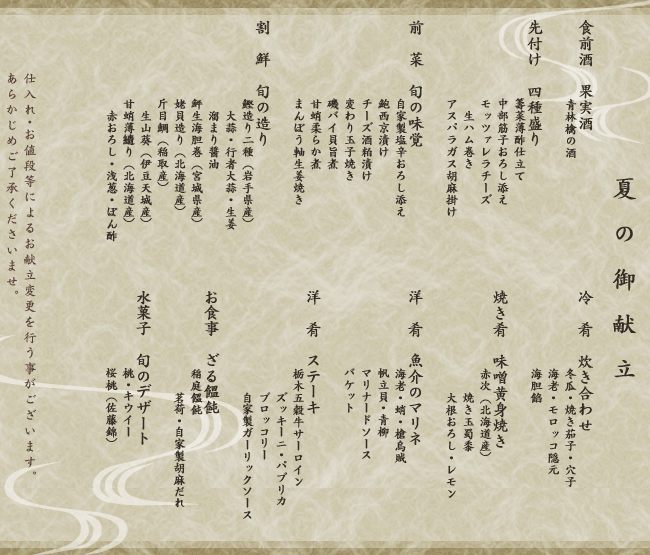 夏の御献立
食前酒 果実酒
青林檎の酒
先付け 四種盛り
蓴菜薄酢仕立て
中部筋子おろし添え
モッツァレラチーズ
生ハム巻き
アスパラガス胡麻掛け
前菜 旬の味覚
自家製塩辛おろし添え
鮑西京漬け
チーズ酒粕漬け
変わり玉子焼き
磯バイ貝旨煮
甘蛸柔らか煮
まんぼう軸生姜焼き
割鮮 旬の造り
鰹造り二種（岩手県産）
大蒜・行者大蒜・生姜
溜まり醤油
鮮生海胆巻（宮城県産）
姥貝造り（北海道産）
斤目鯛（稲取産）
生山葵（伊豆天城産）
甘蛸薄造り（北海道産）
赤おろし・浅葱・ぽん酢
冷肴 炊き合わせ
冬瓜・焼き茄子・穴子
海老・モロッコ隠元
海胆餡
焼き肴 味噌黄身焼き
赤次（北海道産）
焼き玉蜀黍
大根おろし・レモン
洋肴 魚介のマリネ
海老・蛸・槍烏賊
帆立貝・青柳
マリナードソース
バケット
洋肴 ステーキ
栃木五穀牛サーロイン
ズッキーニ・パプリカ
ブロッコリー
自家製ガーリックソース
お食事 ざる饂飩
稲庭饂飩
茗荷・自家製胡麻だれ
水菓子 旬のデザート
桃・キウイー
桜桃（佐藤錦）
仕入れ・お値段等によるお献立変更を行う事がございます。
あらかじめご了承くださいませ。